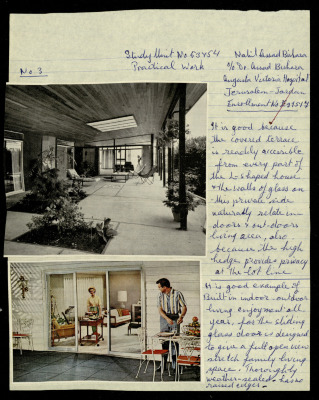 Study Unit No 53454
Practical Work
No 3.
Nabil Assad Bishara
c/o Dr. Assad Bishara
Augusta Victoria Hospital
Jerusalem - Jordan
Enrollment No
It is good because
the covered terrace
is readily accessible
from every part of
the L-shaped house
& the walls of glass on
this private side
naturally relate in-
doors & out-doors
living area, also
because the high
hedge provides privacy
at the lot line
It is good example of
Built in indoor-outdoor
living enjoyment all
year, for the sliding
glass door is designed
to give a full open view
stretch family living
space. Thoroughly
weather-sealed & has no
raised edges.